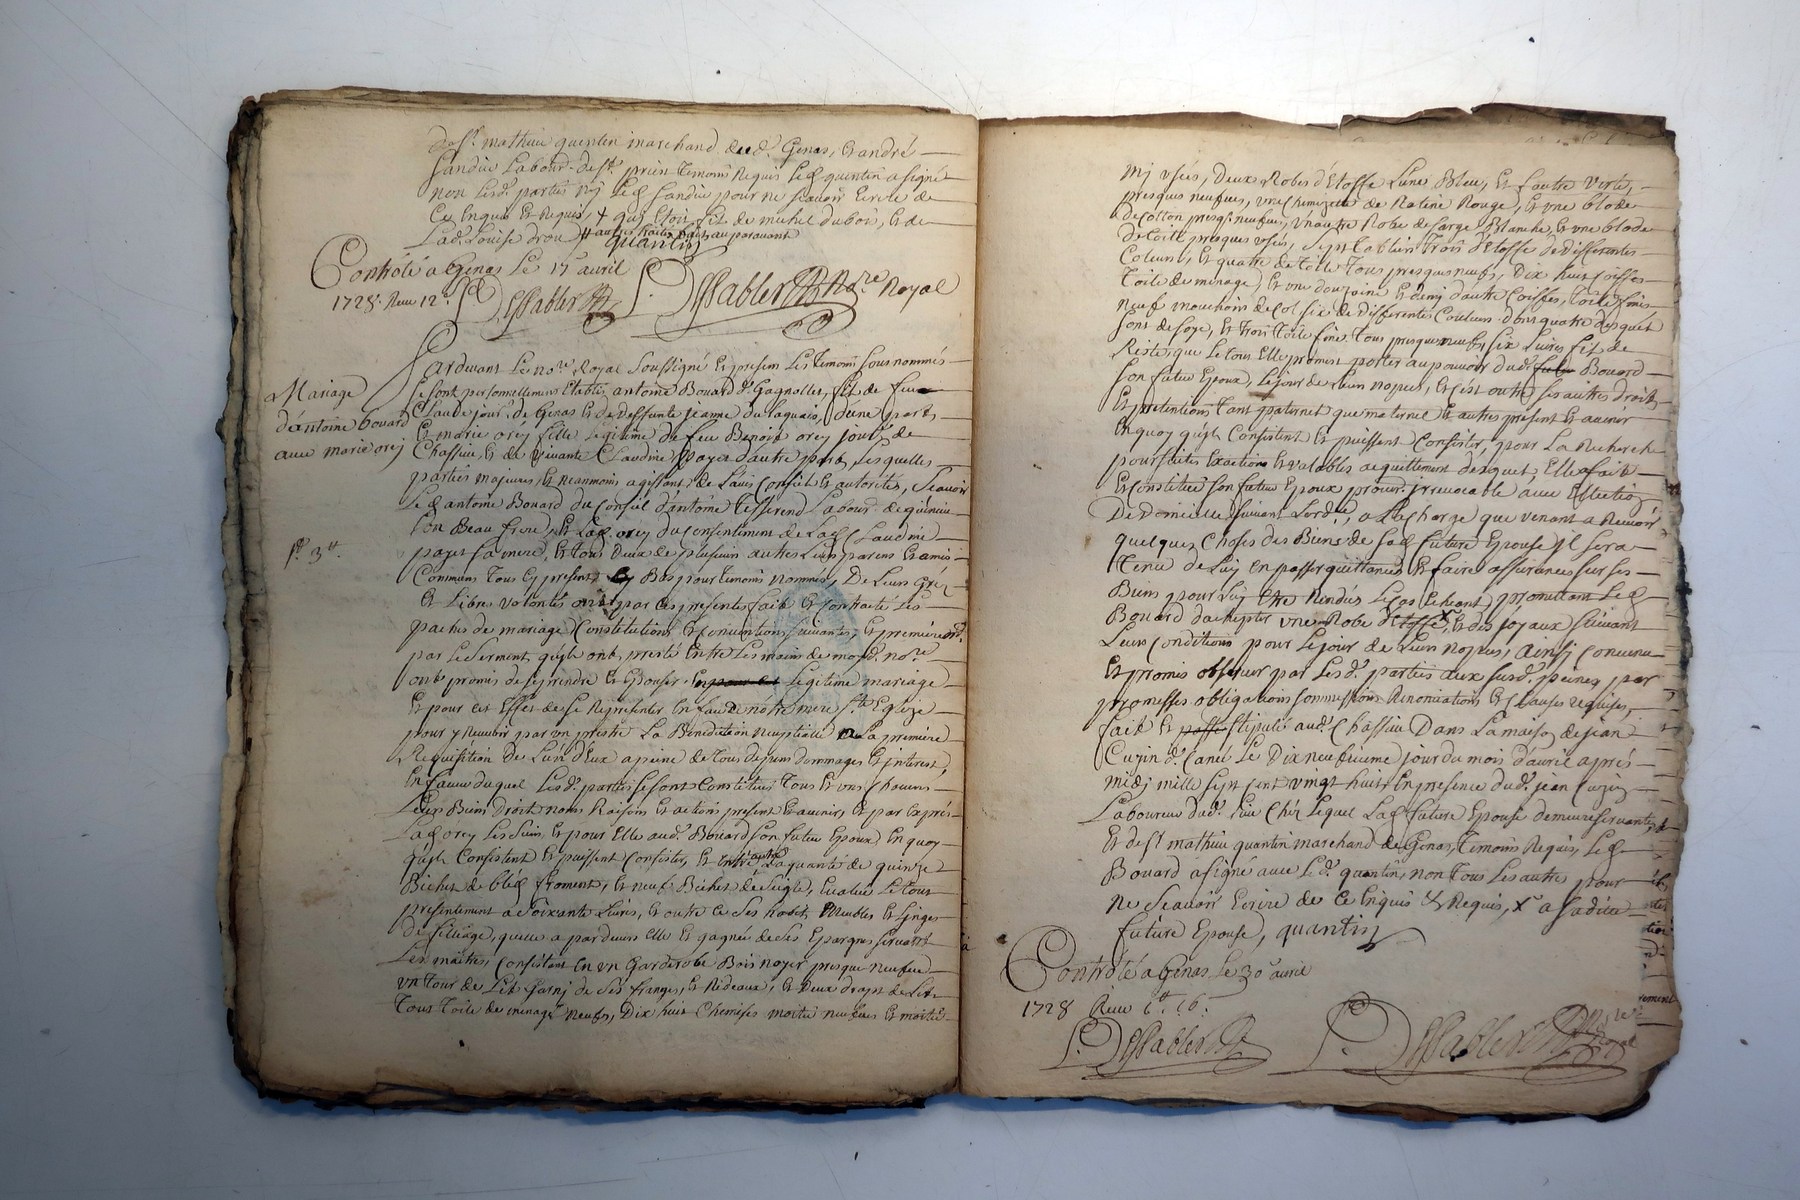 de sr. mathieu quentin marchand dud. Genas, Et andré
Sandier Labour. de st. priex Temoins Requis Led. quentin a signé
non Lesd. parties nj Led. Sandier pour ne scauoir Ecrire de
Ce Enquis Et Requis, + qui Etoit fils de michel dubois, Et de
Lad. Louise drou
quantin
Contrôlé a Genas Le 17 avril
1728. Receu 12 s.
Par deuant Le nore. Royal Soussigné Et presens Les Temoins sous nommés
Mariage
d'antoine bouard
auec marie orej
Se sont personnellement Etablis antoine Bouard de Gagnolles, fils de feu
Claude jour. de Genas Et de deffunte jeanne du d'une part,
Et marie orej fille Legitime de feu Benoit orej jour. de
Chassieu, Et de viuante Claudine payet d'autre part, Lesquelles
parties majeures, Et neanmoins agissant de L'auis Conseil Et autorités, Scauoir
Led. antoine Bouard du Conseil d'antoine Tisserend Labour. de
son Beau frere, Et Lad. orej du Consentement de Lad. Claudine
payet sa mere, Et tous deux de plusieurs autres Leurs parens Et amis
Communs Tous Cy presents Et Bas pour Temoins nommés, De Leurs gré
Et Libre volonté ont par Ces presentes fait Et Contracté Les
paches de mariage Constitutions Et Conuentions suiuantes, Et premierement
par Le Serment qu'ils ont presté Entre Les mains de moyd. nore.
ont promis de se prendre Et Epouser En Legitime mariage
Et pour cet Effet de se Representer En face de notre mere Ste. Eglize
pour y Receuoir par un prestre La Benediction nuptialle a La premiere
Requisition de L'un d'Eux a peine de tous depens dommages Et interest,
En faueur duquel Lesd. parties se sont Constitués Tous Et uns Chacuns
Leurs Biens droits noms Raisons Et actions presents Et auenirs, Et par Exprés
Lad. orej Les Siens, Et pour Elle aud. Bouard son futur Epoux En quoy
qu'ils Consistent Et puissent Consister, Et Entre autres La quantité de quinze
Bichets de bled froment, Et neuf Bichets de Seigle, Evalué Le tout
presentement a Soixante Liures, Et outre ce Ses habits, Meubles Et Linges
de filliage, qu'elle a par deuers Elle Et gagnés de Ses Epargnes seruant
Les maitres, Consistant En un Garderobe Bois noyer presque neufue
un tour de Lit Garnj de Ses franges, Et Rideaux, Et Deux draps de Lit
Tous Toile de menage neufs, Dix huit Chemises moitié neufues Et moitié
mj usés, Deux Robes d'Etoffe L'une Bleu, Et L'autre verte,
presques neufues, une Chemizette de Ratine Rouge, Et une blode
de Cotton presq. neufue, un'autre Robe de sarge Blanche, Et une blode
de toile presques usés, Sept tabliers Trois d'Etoffe de differentes
Couleurs, Et quatre de toile Tous presques neufs, Dix huit Coiffes
Toile de menage, Et une douzaine Et demj d'autre Coiffes, toile
neuf mouchoirs de Col six de differentes Couleurs dont quatre desquels
sont de soye, Et trois toile fine Tous presques neufs,
Restes, que Le tout Elle promet porter au pouvoir dud. Bouard
son futur Epoux, Le jour de Leurs nopces, Et c'est outre ses autres droits
Et pretentions tant paternel que maternel Et autres present Et auenir
En quoy qu'ils Consistent Et puissent Consister, pour La Recherche
poursuites Exactions Et valables acquittement desquels, Elle fait
Et Constitue son futur Epoux procur. irreuocable auec Ellection
De Domicille suiuant L'ord., a la Charge que venant a Receuoir
quelques Choses des Biens de sad. future Epouse il sera
tenu de Luy En passer quittances Et faire assurances sur ses
Biens pour Luy Etre Rendus Le Cas Echeant, promettant Led.
Bouard d'achepter une Robe d'Etoffe x, Et des joyaux suiuant
Leurs Conditions pour Le jour de Leurs nopces, ainsj Conuenu
Et promis obseruer par Lesd. parties aux susd. peines par
promesses obligations soumissions Renonciations Et Clauses Requises,
fait Et passé stipulé aud. Chassieu Dans La maison de jean
Cuzin Le Dix neufuieme jour du mois d'auril aprés
midj mille Sept Cent vingt huit En presence dud. jean Cuzin
Laboureur dud. Lieu Chez Lequel Lad. future Epouse demeure seruante,
Et de sr. mathieu quantin marchand de Genas, Temoins Requis, Led.
Bouard a signé auec Led. quantin, non Tous Les autres pour
ne Scauoir Ecrire de Ce Enquis & Requis, x a sadite
future Epouse, quantin
Contrôlé a Genas Le 30 auril
1728 Receu